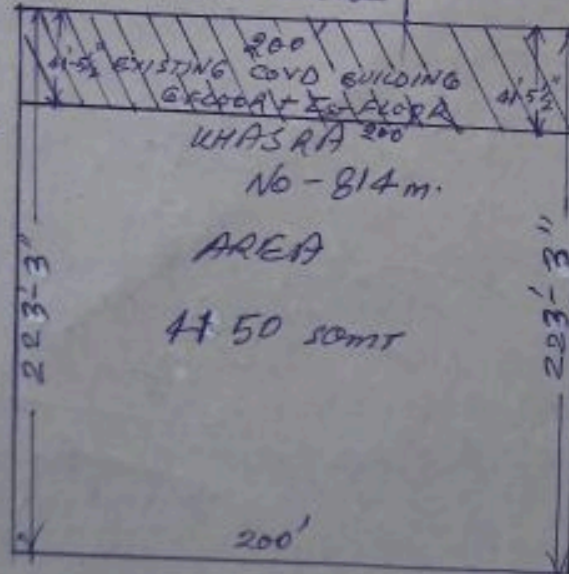 200'
41'-5½" EXISTING COVD BUILDING 41'-5½"
G FLOOR + FLOOR
200
KHASRA
NO - 814 m.
AREA
4150 SQMT
223'-3"
223'-3"
200'